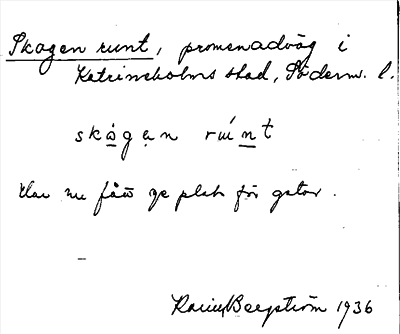 Skogen runt, promenadväg i
Katrineholms stad, Söderm. l.
skógan rúnt
Har nu fått ge plats för gator.
Bergström 1936